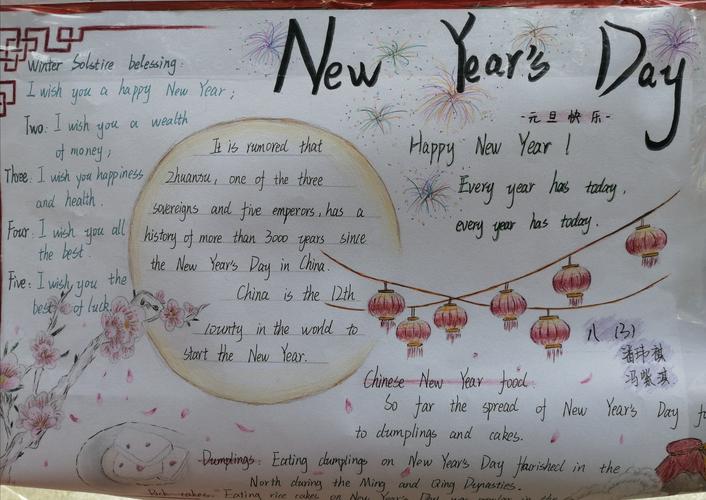 New Year's Day
-元旦快乐-
Winter Solstire belessing:
I wish you a happy New Year;
Two: I wish you a wealth
of money;
Three: I wish you happiness
and health.
Four: I wish you all
the best.
Five: I wish you the
best of luck.
It is rumored that
Zhuanxu, one of the three
sovereigns and five emperors, has a
history of more than 3000 years since
the New Year's Day in China.
China is the 12th
country in the world to
start the New Year.
Happy New Year!
Every year has today,
every year has today.
八(3)
Chinese New Year food
So far the spread of New Year's Day
to dumplings and cakes.
Dumplings: Eating dumplings on New Year's Day flourished in the
North during the Ming and Qing Depnasties.
Eating rice cakes on New Year's Day was popular in the